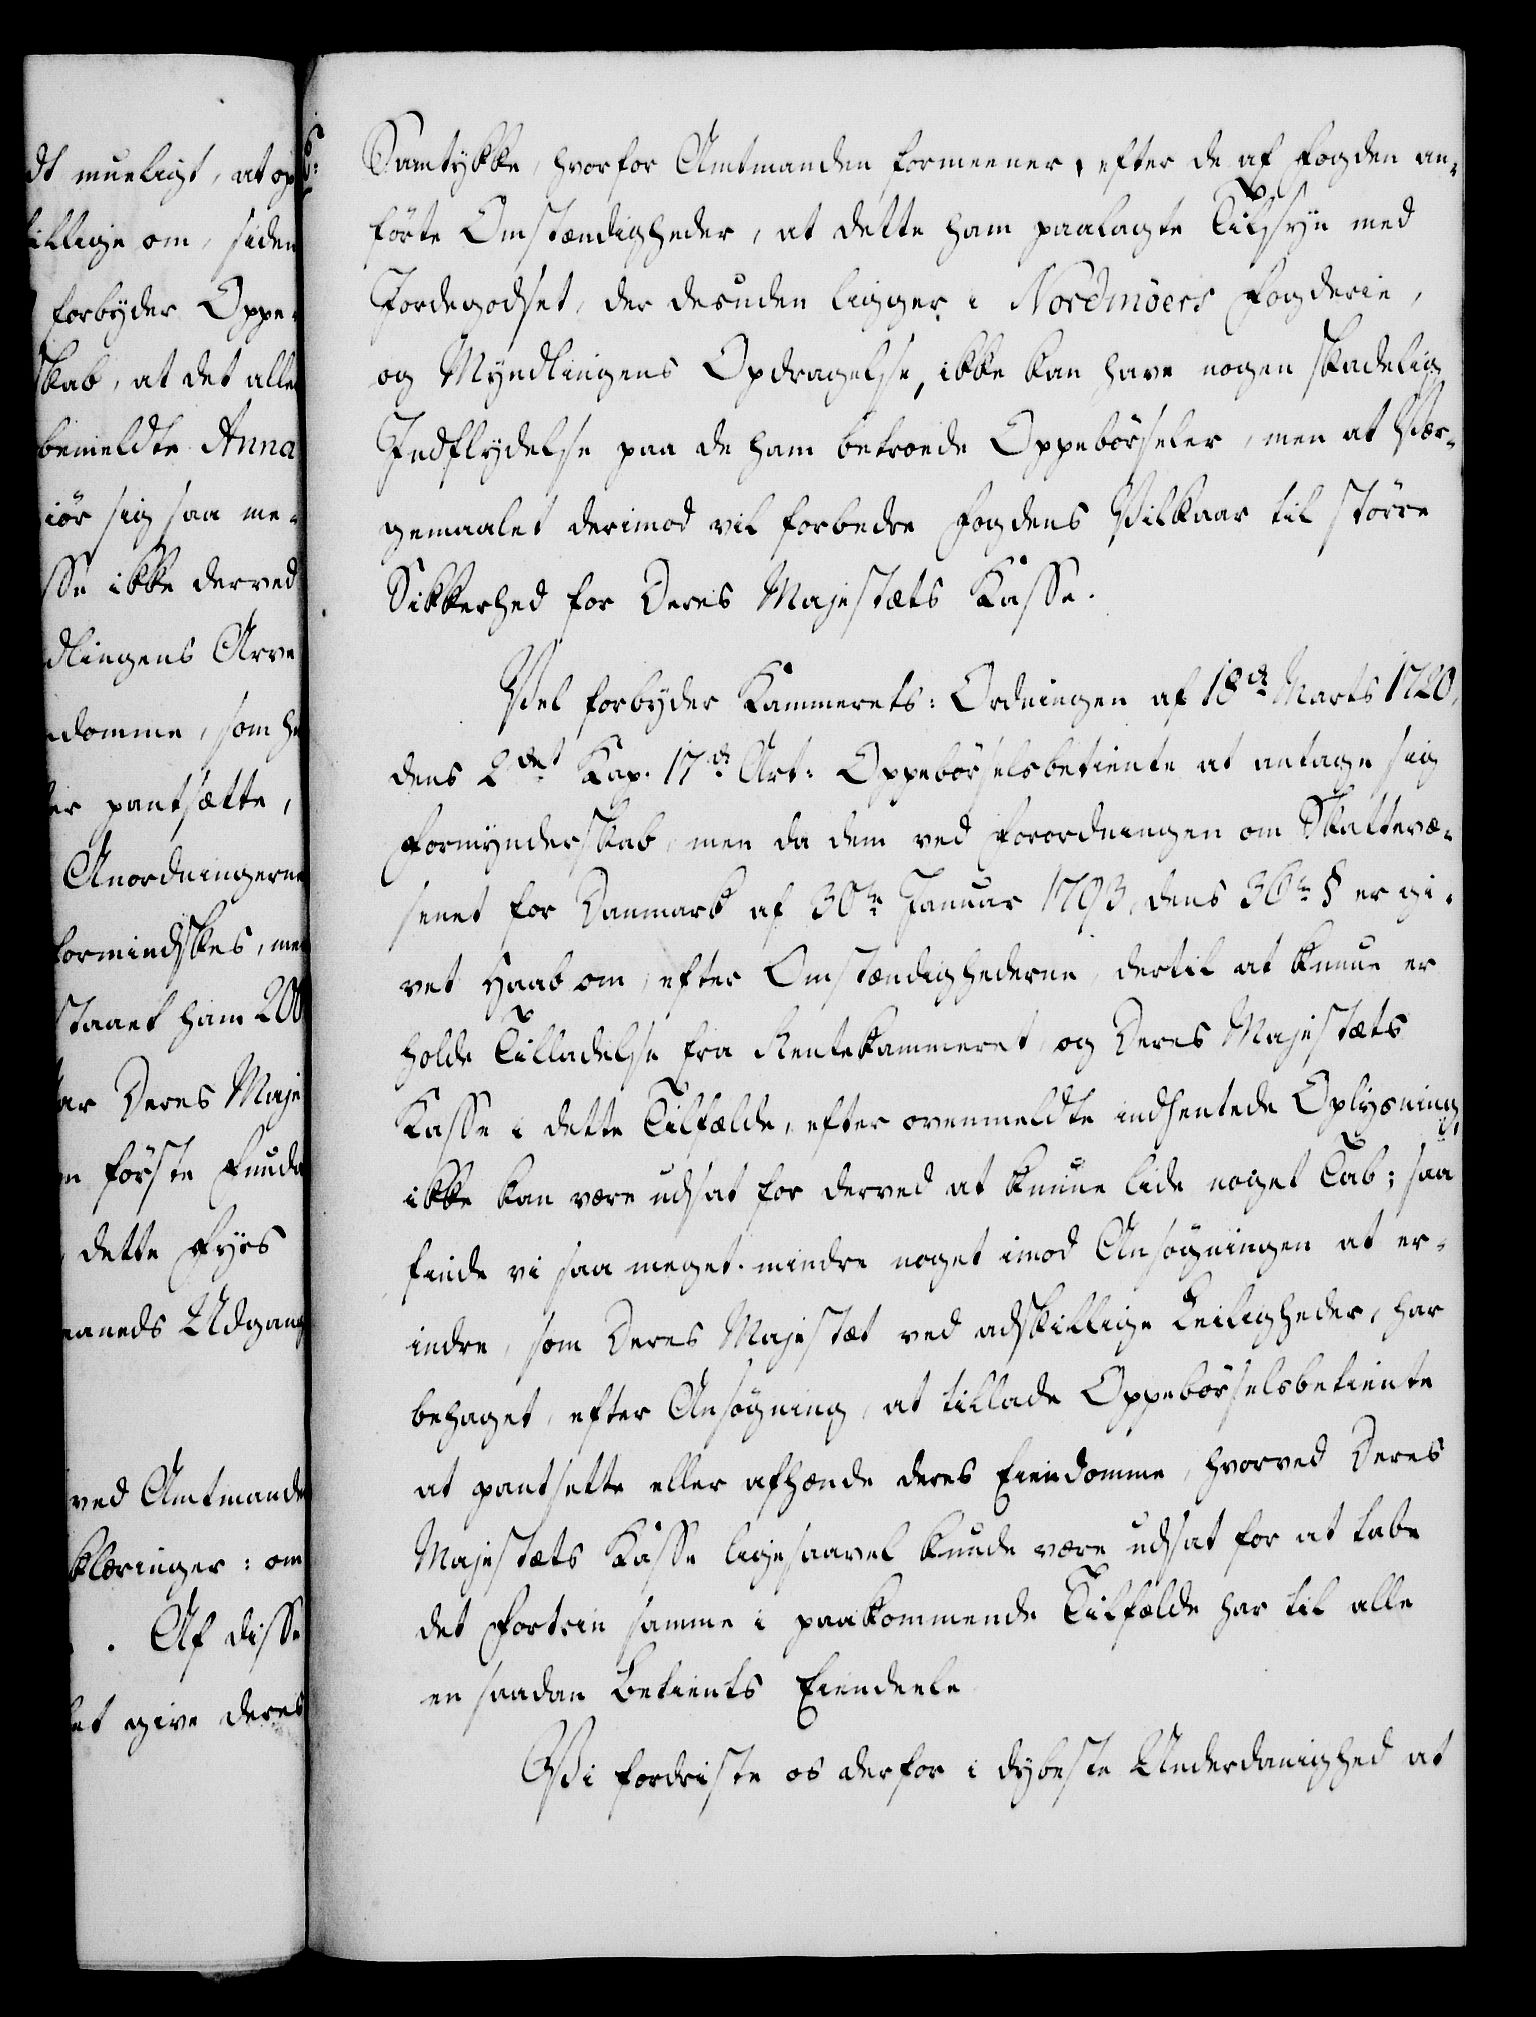 dt mueligt, at op
tillige om, siden
forbyder Oppe-
skab, at det alle
bemeldte Anna
iör sig saa me-
sse ikke derved
dlingens Arve
domme, som he
er pantsætte,
Anordningerne
formindskes, men
staaet ham 200
ar Deres Maje
n förste Fuuda
dette Fyes
aaneds Udgang
ved Amtmande
klæringer: om
. Af disse
et give deres
Samtykke, hvorfor Amtmanden formeener, efter de af Fogden an-
förte Omstændigheder, at dette ham paalagte Tilsyn med
Jordegodset, der desuden ligger i Nordmöers Fogderie,
og Myndlingens Opdragelse, ikke kan have nogen skadelig
Indflydelse paa de ham betroede Oppebörseler, men at Vær-
gemaalet derimod vil forbedre Fogdens Vilkaar til större
Sikkerhed for Deres Majestæts Kasse.
Vel forbyder Kammerets: Ordningen af 18de Marts 1720,
dens 2det Kap. 17de Art: Oppebörselsbetiente at antage sig
Formynderskab, men da dem ved Forordningen om Skattevæ-
senet for Danmark af 30te Januar 1793, dens 36te § er gi-
vet Haab om, efter Omstændighederne, dertil at kunne er
holde Tilladelse fra Rentekammeret, og Deres Majestæts
Kasse i dette Tilfælde, efter ovenmeldte indhentede Oplysning,
ikke kan være udsat for derved at kunne lide noget Tab; saa
finde vi saa meget mindre noget imod Ansögningen at er-
indre, som Deres Majestæt ved adskillige Leiligheder, har
behaget, efter Ansögning, at tillade Oppebörselsbetiente
at pantsette eller afhænde deres Eiendomme, hvorved Deres
Majestæts Kasse ligesaavel kunde være udsat for at tabe
det Fortrin samme i paakommende Tilfælde har til alle
en saadan Betients Eiendeele
Vi fordriste os derfor i dybeste Underdanighed at